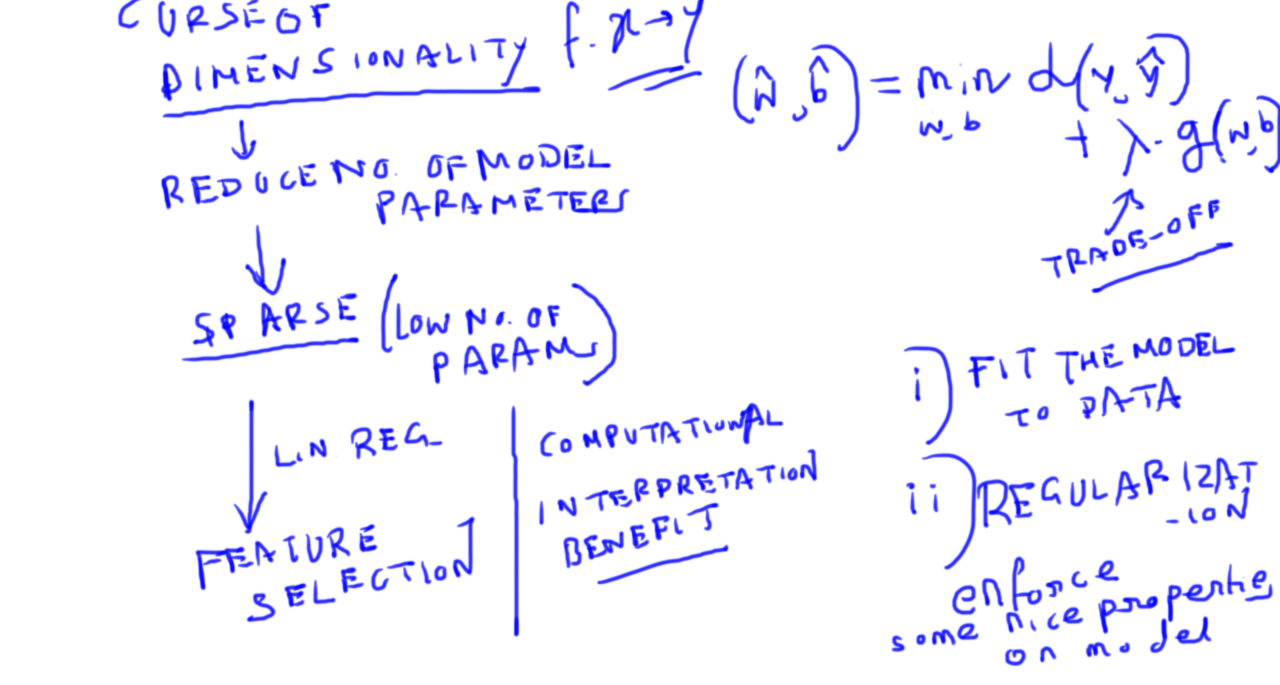 CURSE OF
DIMENSIONALITY f: x→y
↓
REDUCE NO. OF MODEL
PARAMETERS
↓
SPARSE (LOW NO. OF
PARAMS)
↓ LIN REG
FEATURE
SELECTION
COMPUTATIONAL
INTERPRETATION
BENEFIT
(ŵ, b̂) = min d(y, ŷ)
w, b
+ λ. g(w,b)
TRADE-OFF
i) FIT THE MODEL
TO DATA
ii) REGULARIZAT
-ION
enforce
some nice properties
on model